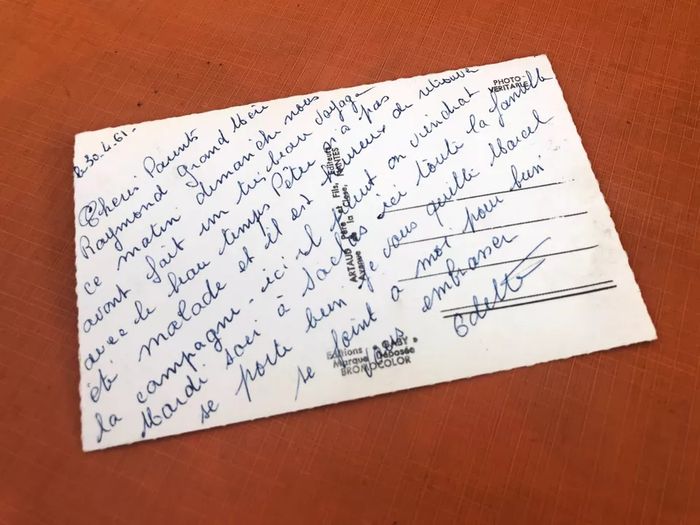 le 30.4.61-
Cheris Parents
Raymond Grand Mère
ce matin dimanche nous
avont fait un très beau voyage
avec le beau temps Péter n'a pas
été malade et il est heureux de retrouver
la campagne - ici il pleut on viendrat
Mardi soir à ici toute la famille
se porte bien je vous quitte Marcel
se joint a moi pour bien
vous embrasser
Odette
PHOTO-
VERITABLE
ARTAUD Père et Fils, Editeurs
Avenue de la Close, NANTES
Editions "GABY"
Marque Déposée
BROMOCOLOR